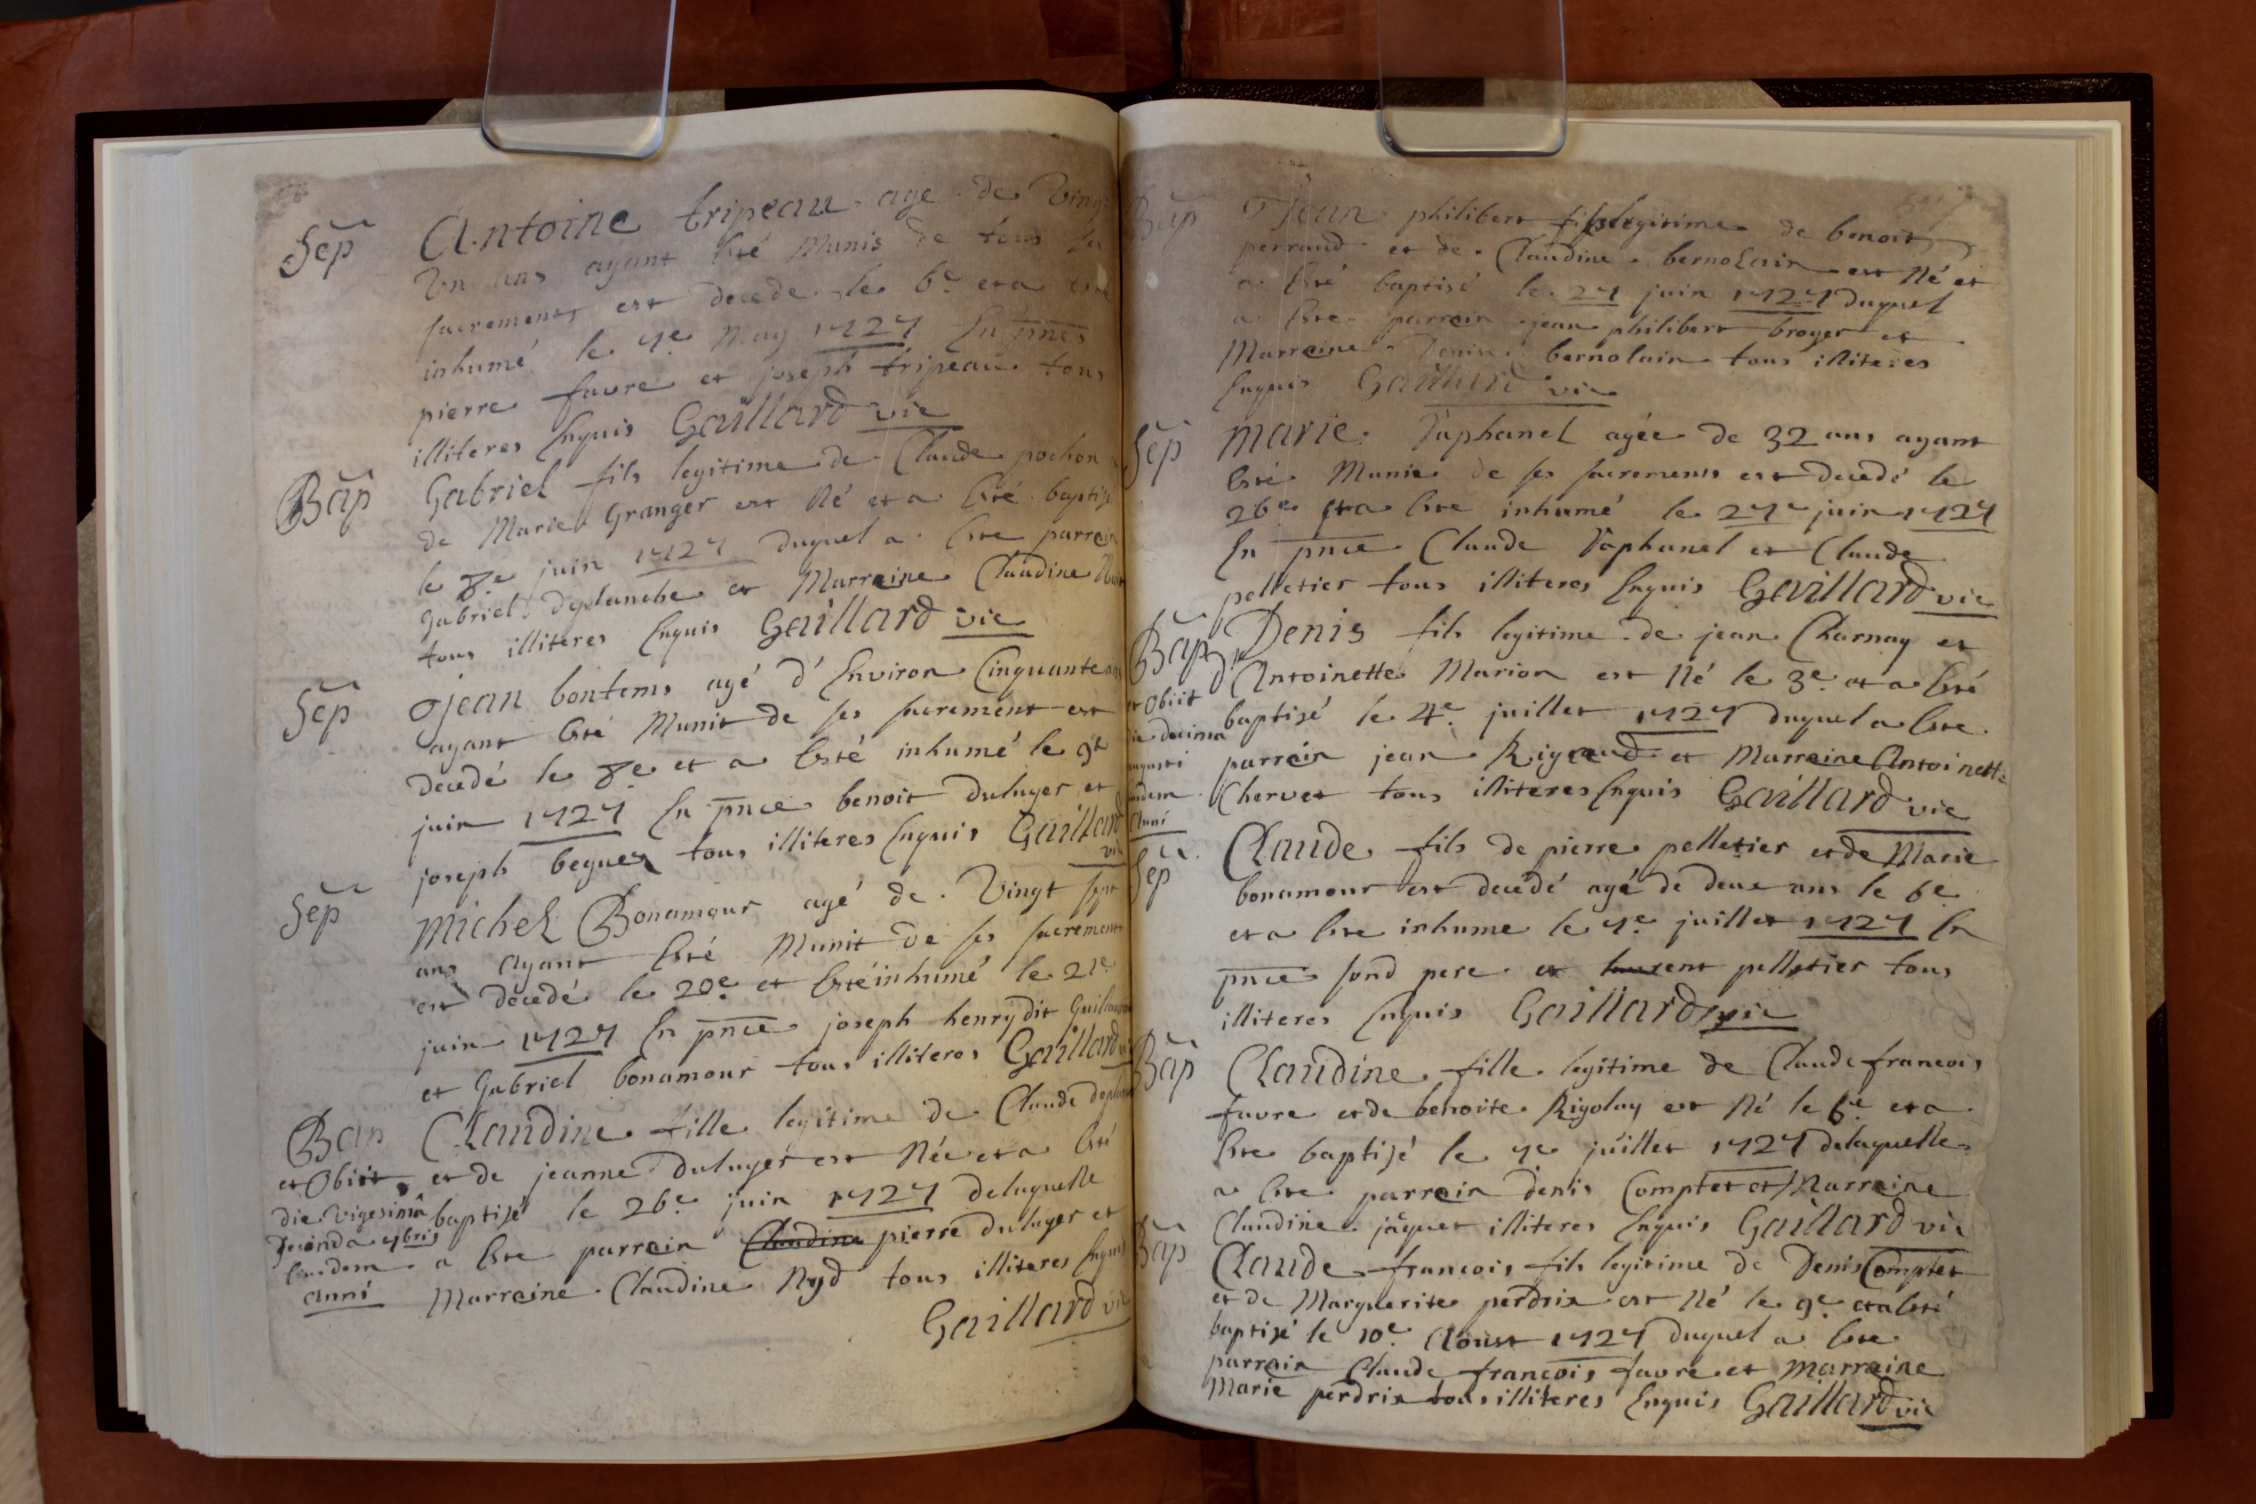 Sep
Antoine tripeau age de Vingt
Un ans ayant Esté Munis de tous
sacrements est decede le 6e et a esté
inhumé le 7e May 1727 En pnce
pierre favre et joseph tripeau tous
illiteres Enquis Gaillard vic
Bap
Gabriel fils legitime de Claude pochon
de Marie Granger est Né et a Esté baptisé
le 8e juin 1727 duquel a Este parrein
Gabriel deplanche et Marreine Claudine
tous illiteres Enquis Gaillard vic
Sep
jean bontems agé d'Environ Cinquante ans
ayant Esté Munit de ses sacrement est
decedé le 8e et a Esté inhumé le 9e
juin 1727 En pnce benoit duluyer et
joseph beguey tous illiteres Enquis Gaillard
vic
Sep
Michel Bonamour agé de Vingt sept
ans ayant Esté Munit de ses sacrements
est decedé le 20e et Esté inhumé le 21e
juin 1727 En pnce joseph henry dit
et Gabriel bonamour tous illiteres Gaillard
Bap
et Obiit
die Vigesimâ
secunda 7bris
Eiusdem
anni
Claudine fille legitime de Claude
et de jeanne duluyer est Née et a Esté
baptisé le 26e juin 1727 delaquelle
a Este parrein Claudine pierre duluyer et
Marreine Claudine Nyd tous illiteres Enquis
Gaillard vic
Bap
jean philibert fils legitime de benoit
perraud et de Claudine bernolain est Né et
a Esté baptisé le 27 juin 1727 duquel
a Este parrein jean philibert broyer et
Marreine Denise bernolain tous illiteres
Enquis Gaillard vic
Sep
Marie Vaphanel agée de 32 ans ayant
Esté Munie de ses sacrements est decedé le
26e et a Este inhumé le 27e juin 1727
En pnce Claude Vaphanel et Claude
pelletier tous illiteres Enquis Gaillard vic
Bap
et Obiit
die decima
augusti
eiusdem
Anni
Denis fils legitime de jean Charnay et
d'Antoinette Marion est Né le 3e et a Esté
baptisé le 4e juillet 1727 duquel a Este
parrein jean Rigeaud et Marreine Antoinette
Chervet tous illiteres Enquis Gaillard vic
Sep
Claude fils de pierre pelletier et de Marie
bonamour est decédé agé de deux ans le 6e
et a Este inhume le 7e juillet 1727 En
pnce sond pere et laurent pelletier tous
illiteres Enquis Gaillard vic
Bap
Claudine fille legitime de Claude francois
favre et de benoite Rigolay est Né le 6e et a
Este baptisé le 7e juillet 1727 delaquelle
a Este parrein denis Comptet et Marreine
Claudine jaquet illiteres Enquis Gaillard vic
Bap
Claude francois fils legitime de Denis Comptet
et de Marguerite perdrix est Né le 9e et a Esté
baptisé le 10e Aoust 1727 duquel a Este
parrein Claude francois favre et Marreine
Marie perdrix tous illiteres Enquis Gaillard vic